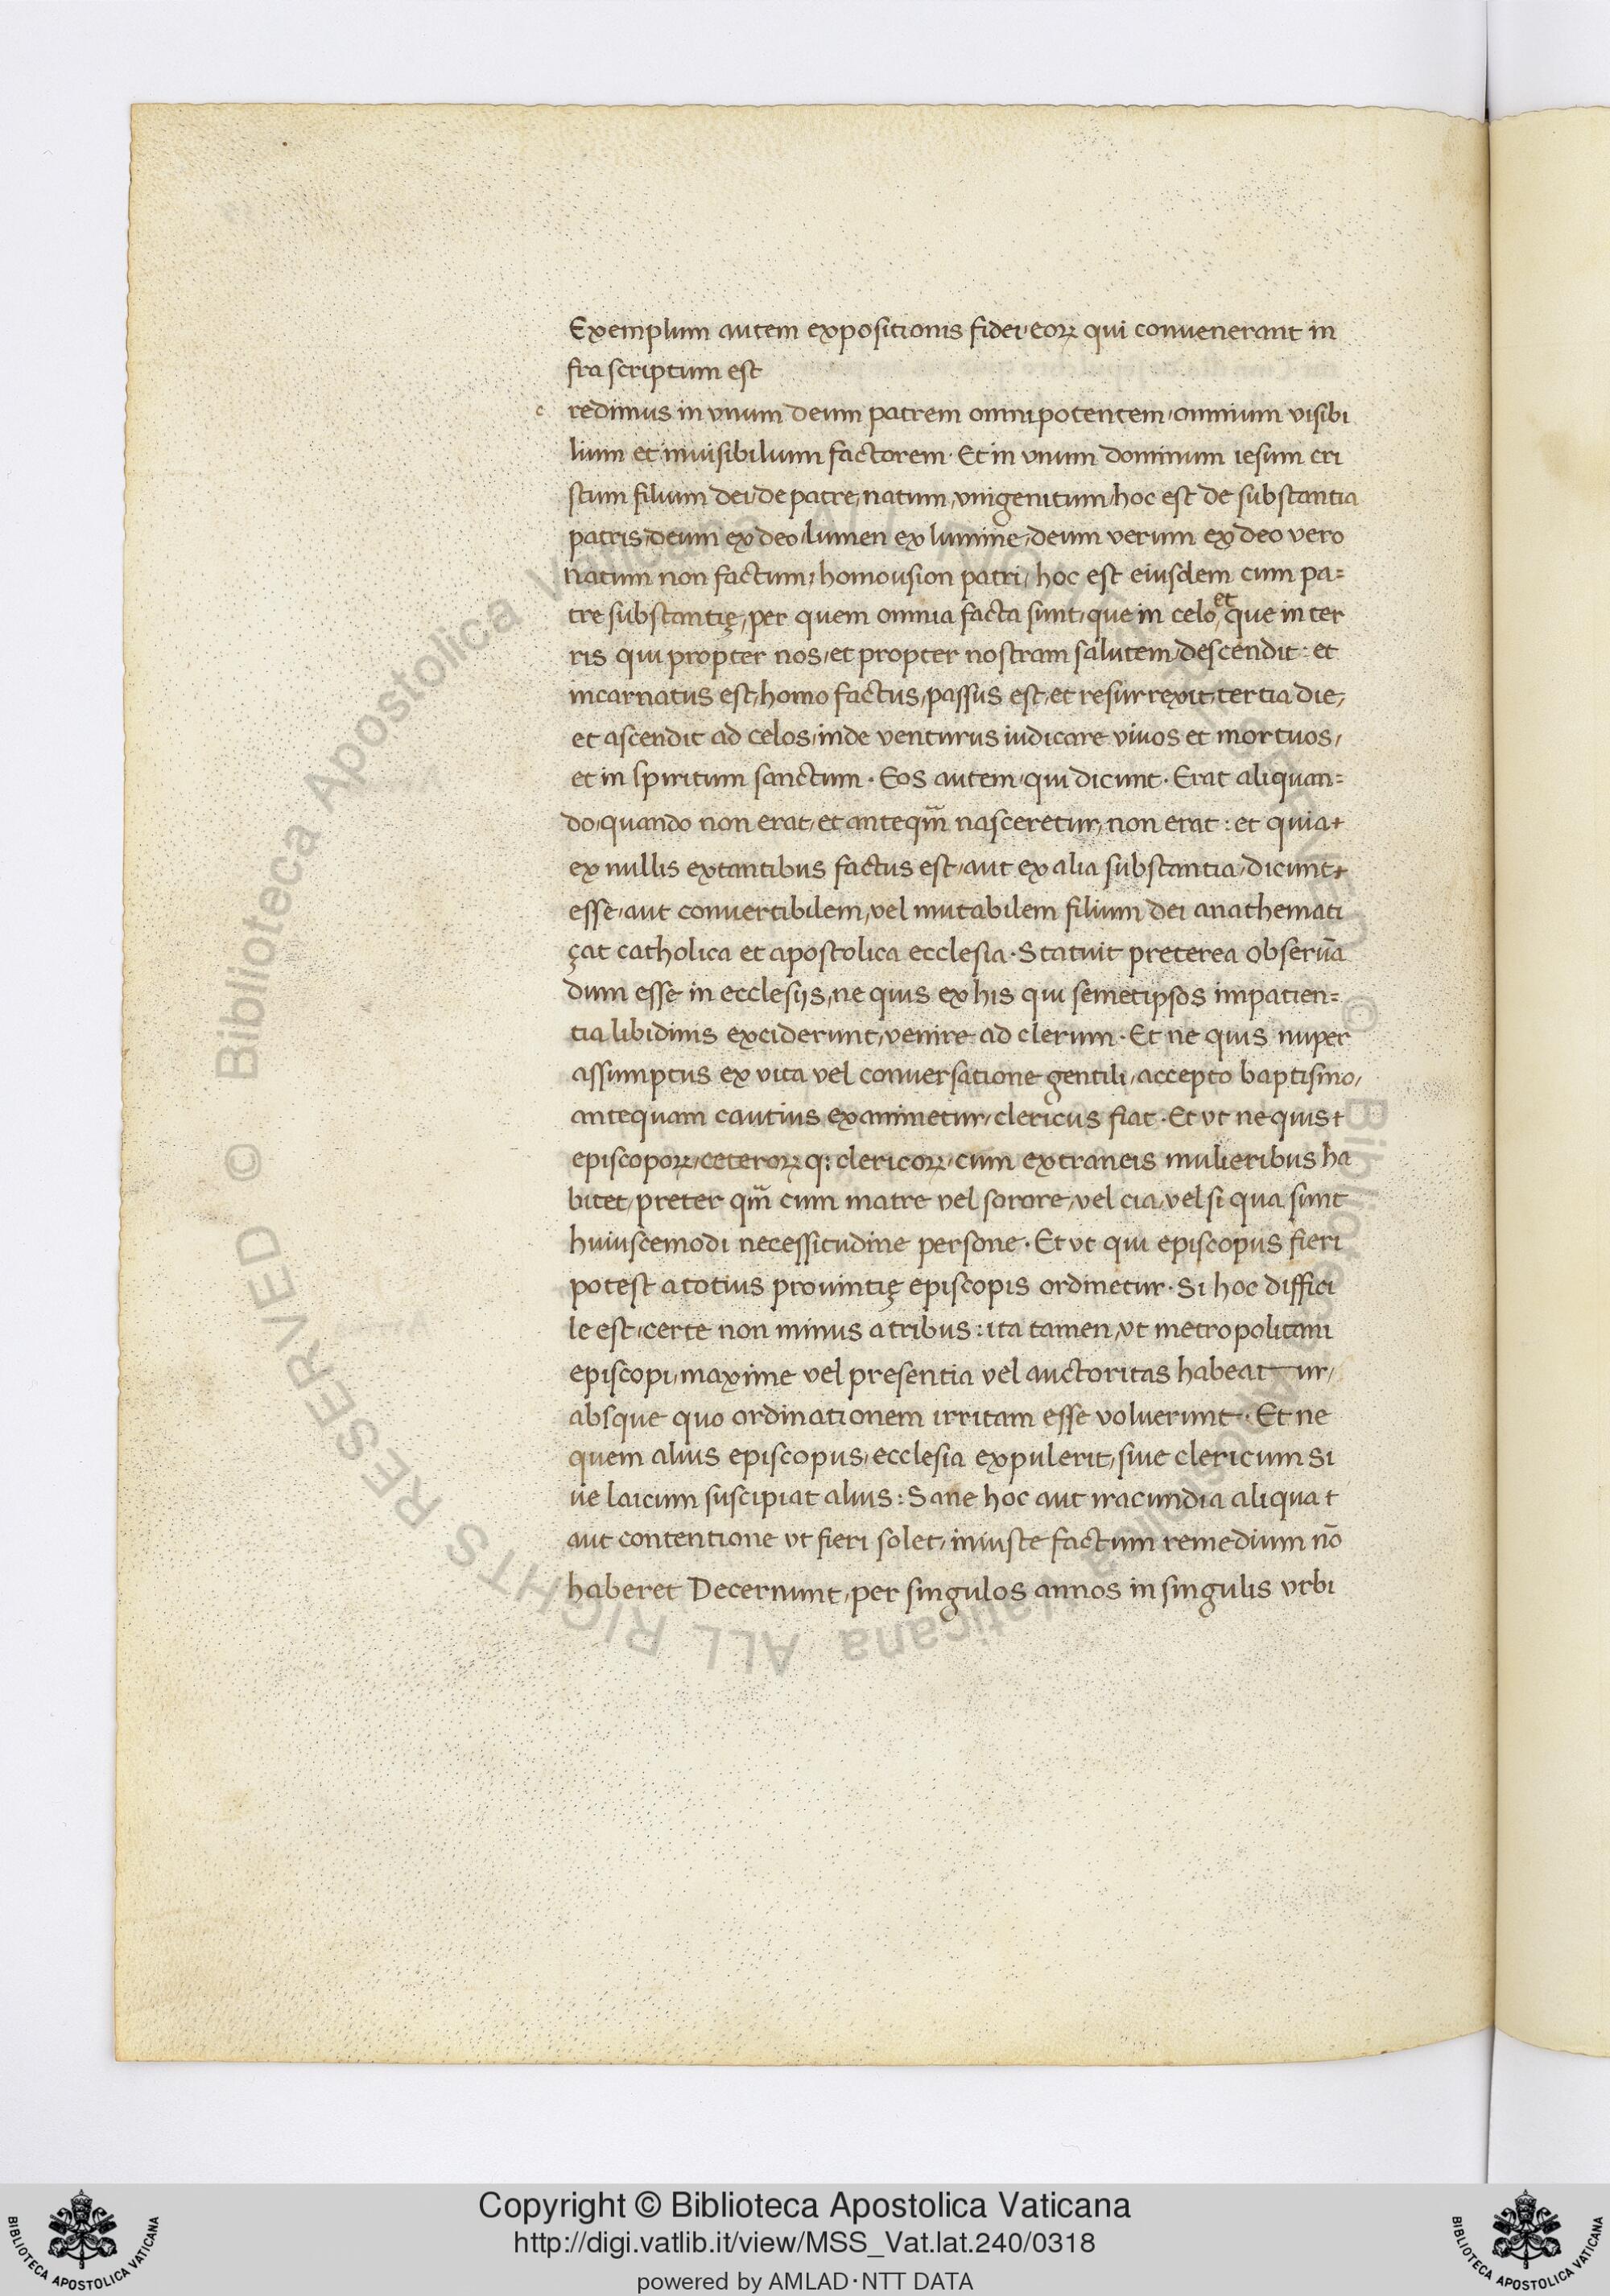 Exemplum autem expositionis fidei eoꝝ qui conuenerant in
fra scriptum est
c redimus in vnum deum patrem omnipotentem, omnium visibi
lium et inuisibilium factorem. Et in vnum dominum iesum cri
stum filium dei, de patre, natum, vnigenitum, hoc est de substantia
patris, deum ex deo, lumen ex lumine, deum verum ex deo vero
natum non factum, homousion patri, hoc est eiusdem cum pa=
tre substantię, per quem omnia facta sunt, que in celo, et que in ter
ris qui propter nos, et propter nostram salutem, descendit: et
incarnatus est, homo factus, passus est, et resurrexit, tertia die,
et ascendit ad celos, inde venturus iudicare viuos et mortuos,
et in spiritum sanctum. Eos autem, qui dicunt. Erat aliquan=
do, quando non erat, et anteqm̄ nasceretur, non erat: et quia
ex nullis extantibus factus est, aut ex alia substantia, dicunt
esse, aut conuertibilem, vel mutabilem filium dei anathemati
çat catholica et apostolica ecclesia. Statuit preterea obseruā
dum esse in ecclesijs, ne quis ex his qui semetipsos impatien=
tia libidinis exciderunt, venire ad clerum. Et ne quis nuper
assumptus ex vita vel conuersatione gentili, accepto baptismo,
antequam cautius examinetur, clericus fiat. Et vt ne quis
episcopoꝝ, ceteroꝝ q: clericoꝝ, cum extraneis mulieribus ha
bitet, preter qm̄ cum matre vel sorore, vel cia, vel si qua sunt
huiuscemodi necessitudine persone. Et vt qui episcopus fieri
potest a totius prouintię episcopis ordinetur. Si hoc diffici
le est, certe non minus a tribus: ita tamen, vt metropolitani
episcopi, maxime vel presentia vel auctoritas habeatur,
absque quo ordinationem irritam esse voluerunt. Et ne
quem alius episcopus, ecclesia expulerit, siue clericum si
ue laicum suscipiat alius: Sane hoc aut iracundia aliqua
aut contentione vt fieri solet, iniuste factum remedium nō
haberet Decernunt, per singulos annos in singulis vrbi
© Biblioteca Apostolica Vaticana ALL RIGHTS RESERVED
Copyright © Biblioteca Apostolica Vaticana
http://digi.vatlib.it/view/MSS_Vat.lat.240/0318
powered by AMLAD·NTT DATA
BIBLIOTECA APOSTOLICA VATICANA
BIBLIOTECA APOSTOLICA VATICANA